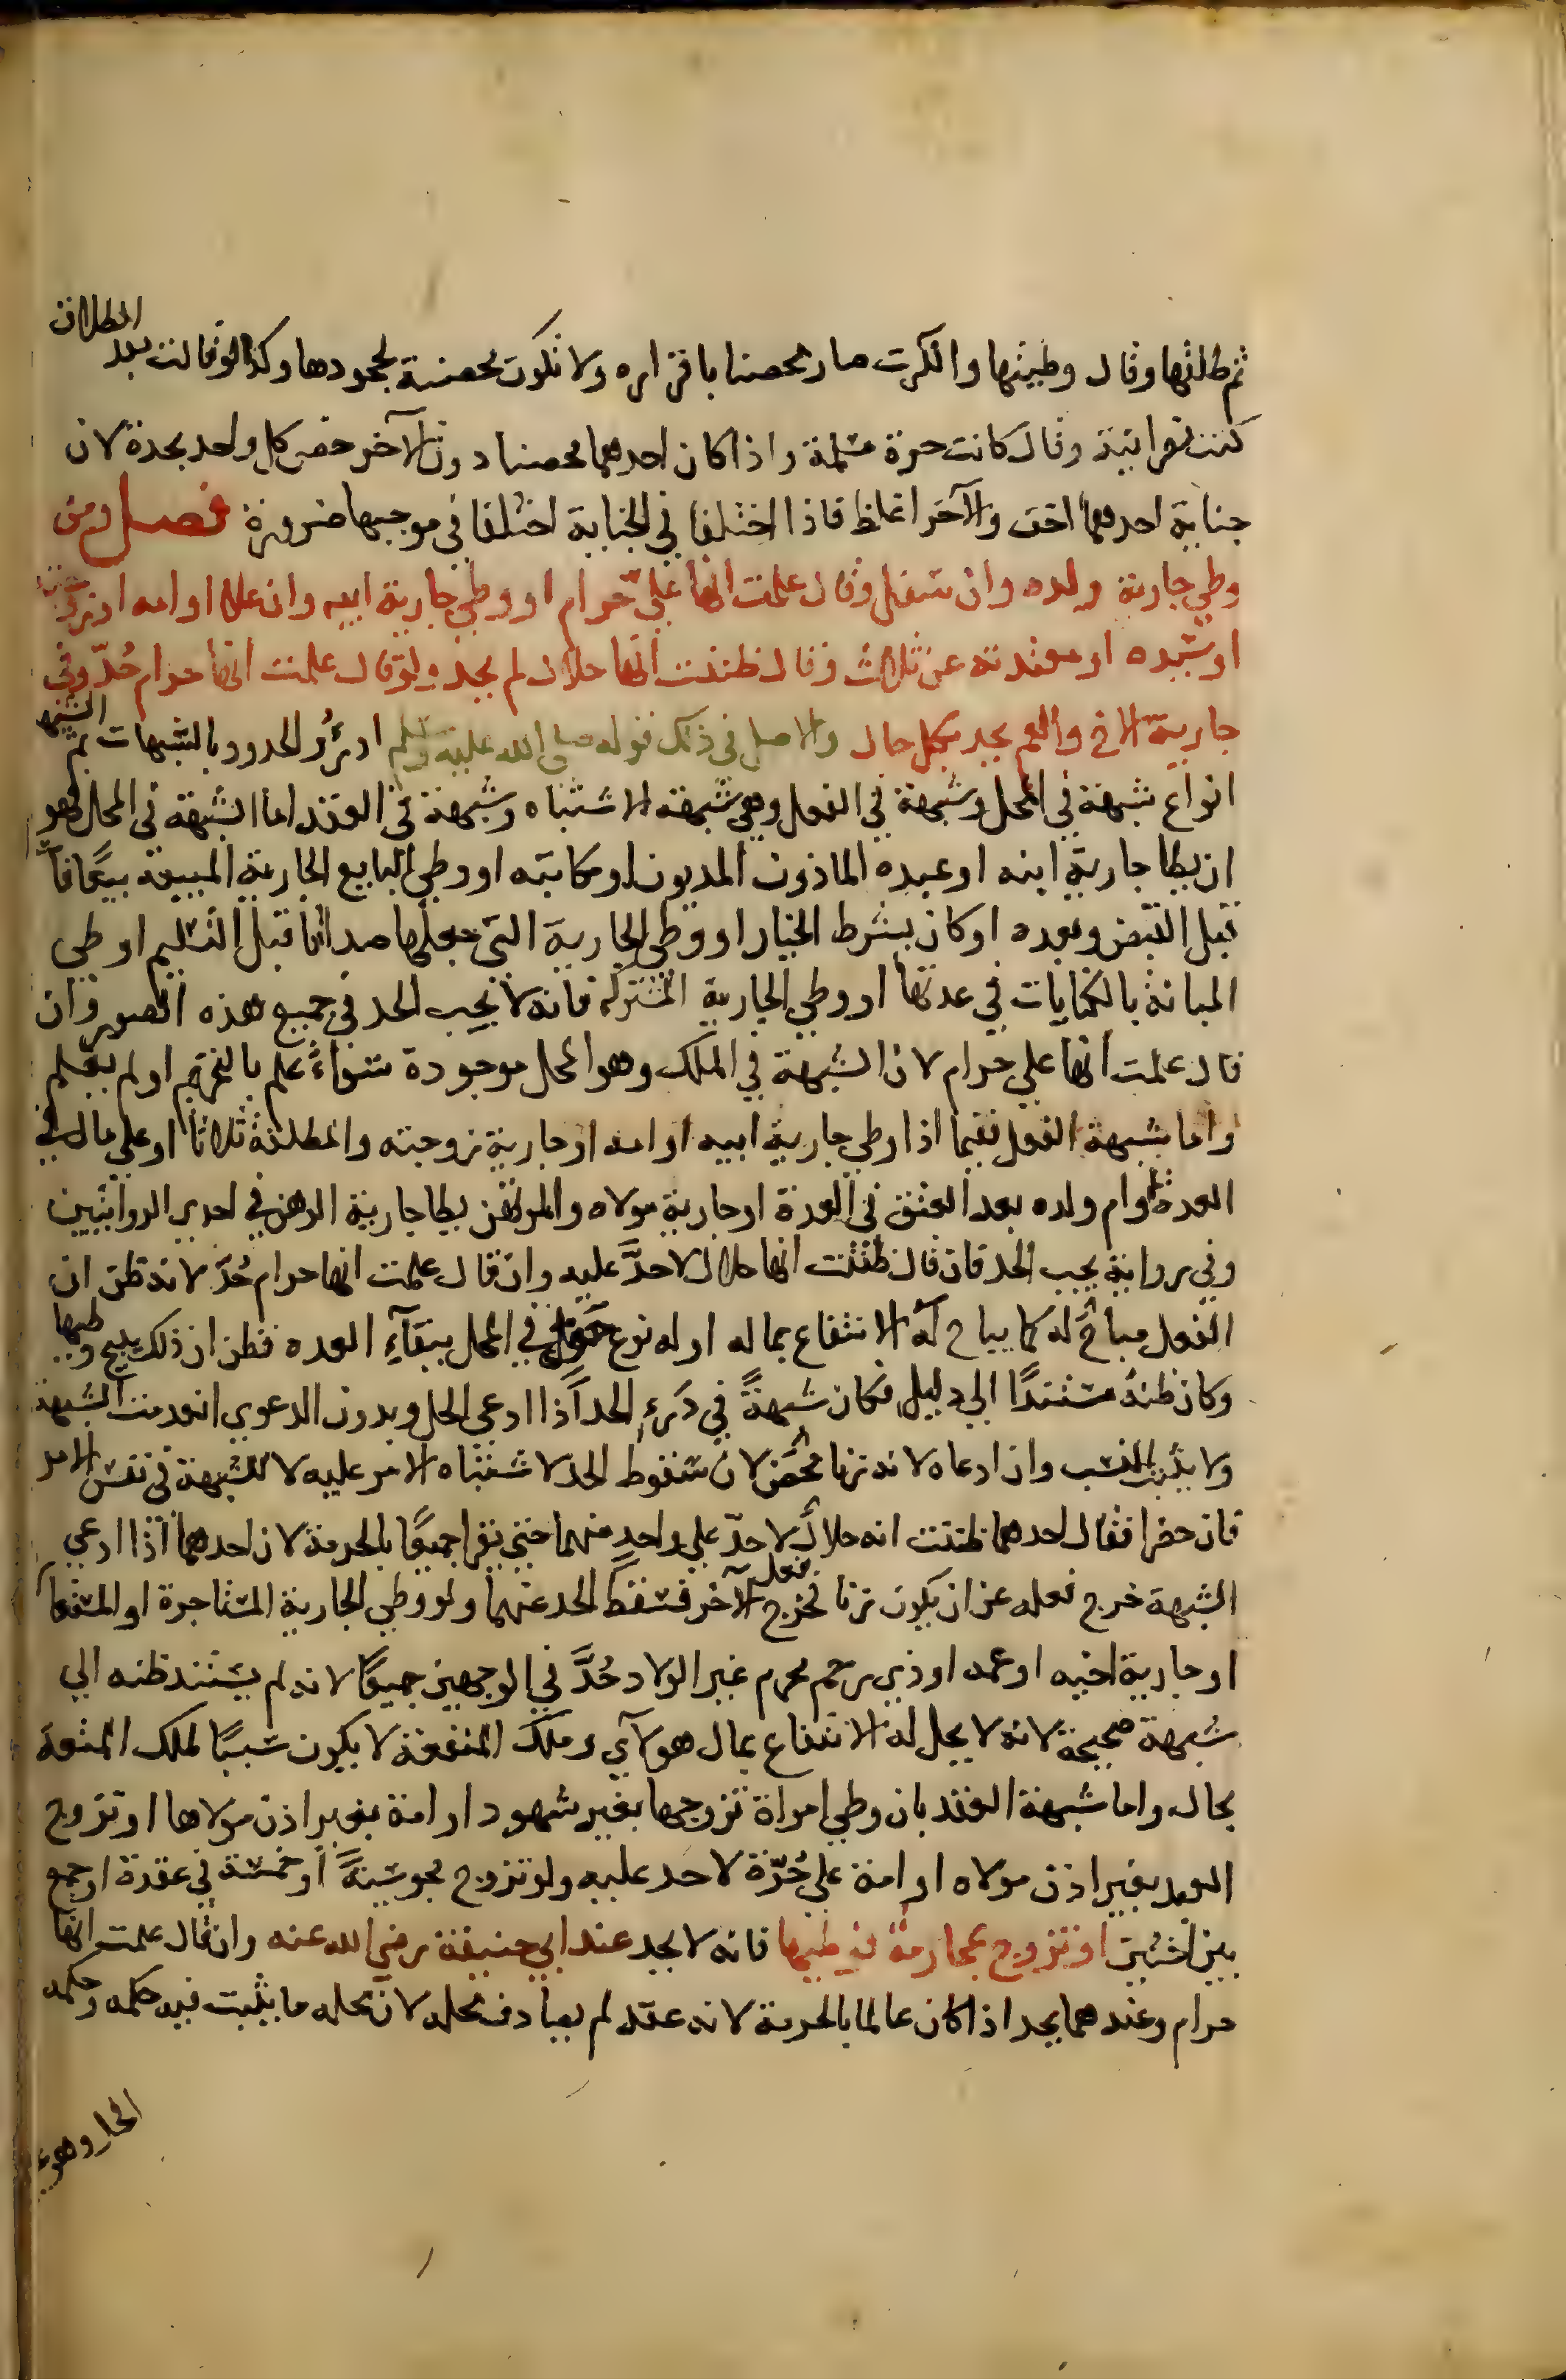 ثم طلقها وقال وطيتها وانكرت صار محصنا باقراره ولا تكون محصنة بجحودها وكذا لو قالت بعد الطلاق
كنت نصرانية وقال كانت حرة مسلمة واذا كان احدهما محصنا دون الآخر خص كل واحد بحده لان
جناية احدهما اخف والآخر اغلظ فاذا اختلفا في الجناية اختلفا في موجبها ضرورة فصل ومن
وطي جارية ولده وان سفل وقال علمت انها علي حرام او وطي جارية ابيه وان علا او امه او زوجته
او سيده او معتدته عن ثلاث وقال ظننت انها حلال لم يحد ولو قال علمت انها حرام حُدّ وفي
جارية الاخ والعم يحد بكل حال والاصل في ذلك قوله صلى الله عليه وسلم ادرؤُ الحدود بالشبهات ثم الشبهة
انواع شبهة في المحل وشبهة في الفعل وهي شبهة الاشتباه وشبهة في العقد اما الشبهة في المحل فهو
ان يطا جارية ابنه او عبده الماذون المديون او مكاتبه او وطي البايع الجارية المبيعة بيعًا فا
قبل القبض وبعده او كان بشرط الخيار او وطي الجارية التي جعلها صداقا قبل التسليم او وطي
المبانة بالكنايات في عدتها او وطي الجارية المشتركة فانه لا يجب الحد في جميع هذه الصور وان
قال علمت انها علي حرام لان الشبهة في الملك وهو المحل موجودة سواءً علم بالتحريم او لم يعلم
واما شبهة الفعل ففيما اذا وطي جارية ابيه او امه او جارية زوجته والمطلقة ثلاثا او على مال في
العدة وام ولده بعد العتق في العدة او جارية مولاه والمرتهن يطا جارية الرهن في احدى الروايتين
وفي رواية يجب الحد فان قال ظننت انها حلال لا حدَّ عليه وان قال علمت انها حرام حُدّ لانه ظن ان
الفعل مباحٌ له كما يباح له الانتفاع بماله او له نوع حق في المحل ببقآءِ العده فظن ان ذلك يبيح وطيها
وكان ظنهُ مستندًا الي دليل فكان شبهةً في دَرءِ الحد اذا ادعي الحل وبدون الدعوي انعدمت الشبهة
ولا يثبت النسب وان ادعاه لانه زنا محض لان سقوط الحد لاشتباه الامر عليه لا للشبهة في نفس الامر
فان حضرا فقال احدهما ظننت انه حلالٌ لا حدّ علي واحدٍ منهما حتي يقرا جميعًا بالحرمة لان احدهما اذا ادعي
الشبهة خرج فعله عن ان يكون زنا فخرج فعل الآخر فسقط الحد عنهما ولو وطي الجارية المستاجرة او المستعا
او جارية اخيه او عمه او ذي رحم محرم غير الولاد حُدَّ في الوجهين جميعًا لانه لم يستند ظنه الي
شبهة صحيحة لانه لا يحل له الانتفاع بمال هولآي وملك المنفعة لا يكون سببًا لملك المتعة
بحال واما شبهة العقد بان وطي امراة تزوجها بغير شهود او امة بغير اذن مولاها او تزوج
العبد بغير اذن مولاه او امة علي حُرّة لا حد عليه ولو تزوج مجوسيةً او خمسة في عقدة او جمع
بين اختين او تزوج بمحارمه فوطيها فانه لا يحد عند ابي حنيفة رضي الله عنه وان قال علمت انها
حرام وعندهما يحد اذا كان عالما بالحرمة لانه عقد لم يصادف محله لان محله ما يثبت فيه حكمه وحكمه
الحل وهو